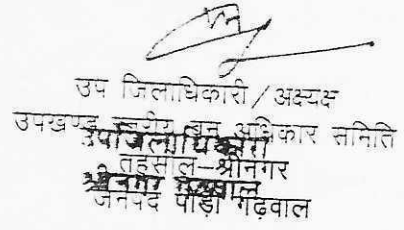 उप जिलाधिकारी / अध्यक्ष
उपखण्ड स्तरीय वन अधिकार समिति
उपजिलाधिकारी
तहसील-श्रीनगर
श्रीनगर गढ़वाल
जनपद पौड़ी गढ़वाल